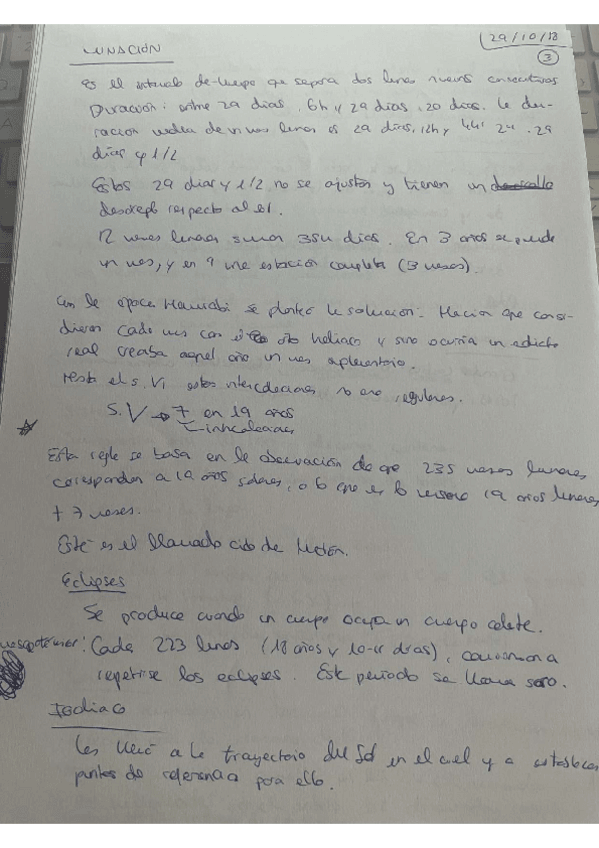 29/10/18
3
LUNACIÓN
es el intervalo de tiempo que separa dos lunas nuevas consecutivas
Duración: entre 29 días, 6h y 29 días, 20 horas. La du-
ración media de un mes lunar es 29 días, 12h y 44' 29
días y 1/2
Estos 29 días y 1/2 no se ajustan y tienen un
respecto al sol.
12 meses lunares suman 354 días. En 3 años se pierde
un mes, y en 9 una estación completa (3 meses).
En la época Hamurabi se planteó la solución: Hacían que
cada mes con orto heliaco y si no ocurría un edicto
real creaba aquel año un mes
Hasta el s. VI estas intercalaciones no eran regulares.
S. V → 7 en 19 años
intercalaciones
Esta regla se basa en la observación de que 235 meses lunares
corresponden a 19 años solares, o lo que es lo mismo 19 años lunares
+ 7 meses.
Este es el llamado ciclo de Metón.
Eclipses
Se produce cuando un cuerpo ocupa un cuerpo celeste.
Cada 223 lunas (18 años y 10-11 días), comienzan a
repetirse los eclipses. Este periodo se llama saro.
Zodiaco
Les llevó a la trayectoria del Sol en el cielo y a establecer
puntos de referencia para ello.